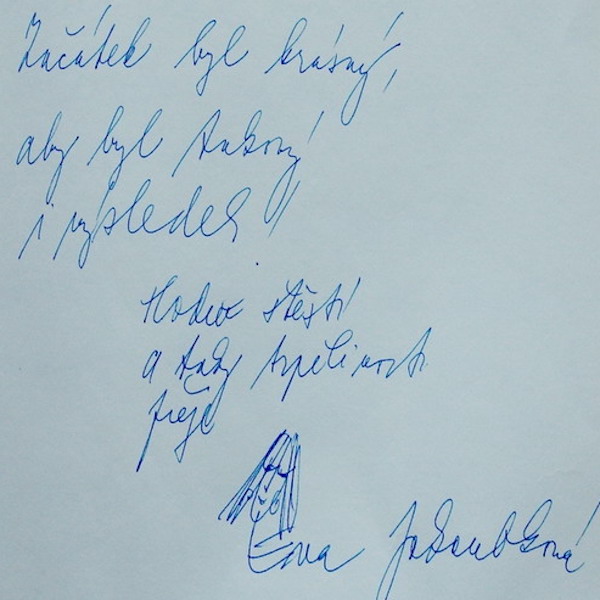 Začátek byl krásný,
aby byl takový
i výsledek!
Hodně štěstí
a tady trpělivosti
přeje
Eva Jakoubková